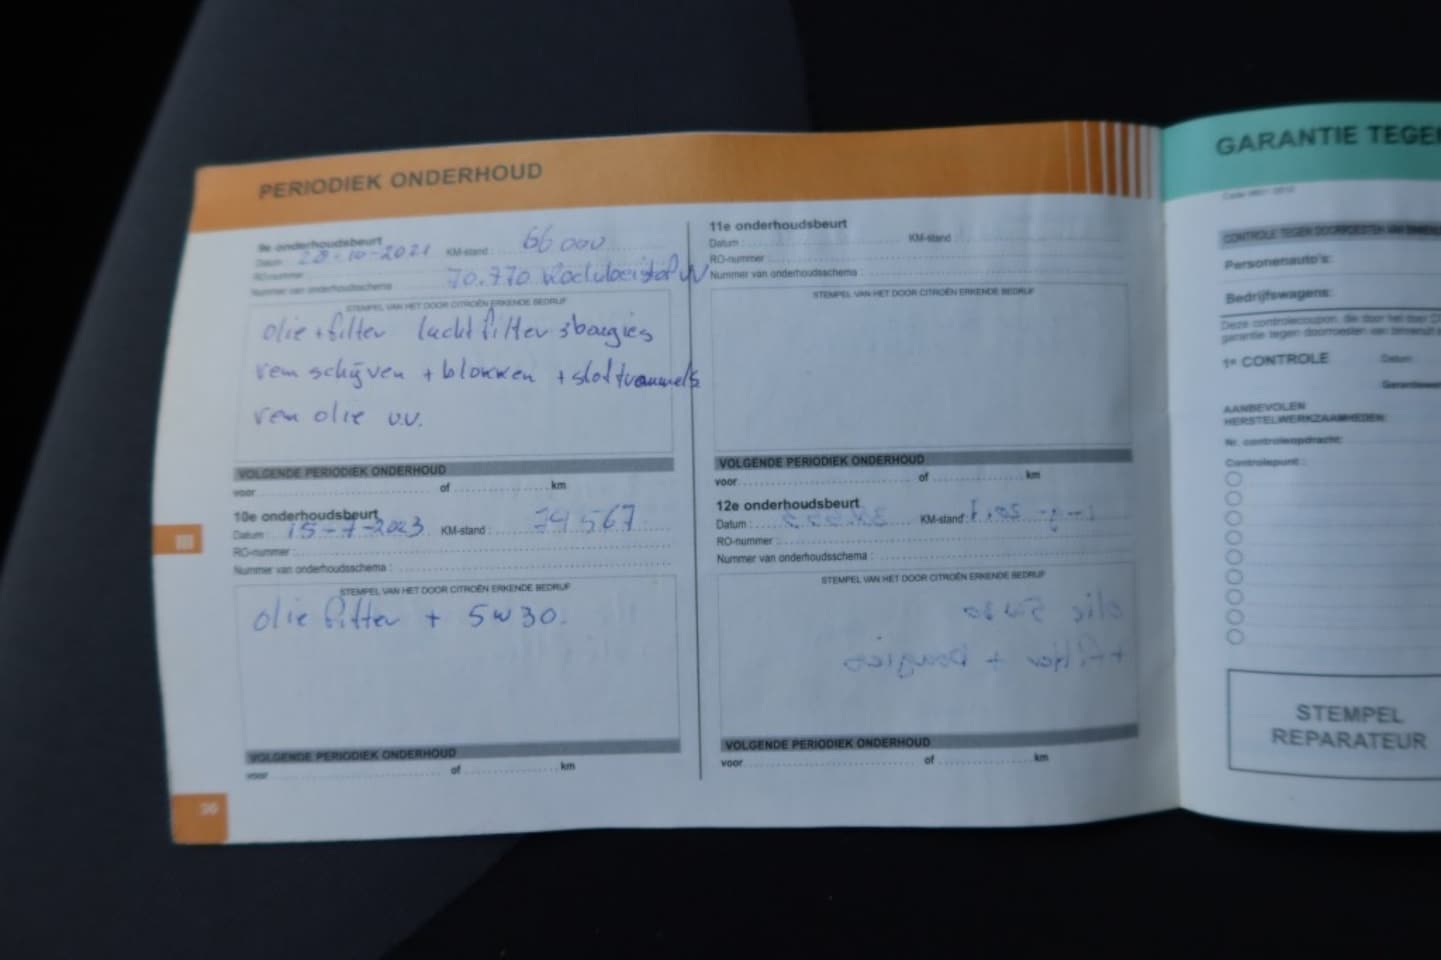 PERIODIEK ONDERHOUD
9e onderhoudsbeurt
Datum : 28-10-2021 KM-stand : 66000
RO-nummer
Nummer van onderhoudsschema 70.770
STEMPEL VAN HET DOOR CITROËN ERKENDE BEDRIJF
olie + filter lucht filter
rem schijven + blokken +
rem olie v.v.
VOLGENDE PERIODIEK ONDERHOUD
voor of km
10e onderhoudsbeurt
Datum : 15-7-2023 KM-stand : 79567
RO-nummer :
Nummer van onderhoudsschema :
STEMPEL VAN HET DOOR CITROËN ERKENDE BEDRIJF
olie filter + 5w30.
VOLGENDE PERIODIEK ONDERHOUD
voor of km
III
36
11e onderhoudsbeurt
Datum : KM-stand
RO-nummer
Nummer van onderhoudsschema
STEMPEL VAN HET DOOR CITROËN ERKENDE BEDRIJF
VOLGENDE PERIODIEK ONDERHOUD
voor of km
12e onderhoudsbeurt
Datum : KM-stand
RO-nummer :
Nummer van onderhoudsschema :
STEMPEL VAN HET DOOR CITROËN ERKENDE BEDRIJF
VOLGENDE PERIODIEK ONDERHOUD
voor of km
GARANTIE TEGE
Personenauto's:
Bedrijfswagens:
1e CONTROLE Datum
AANBEVOLEN
HERSTELWERKZAAMHEDEN:
Nr. controleopdracht:
Controlepunt :
STEMPEL
REPARATEUR